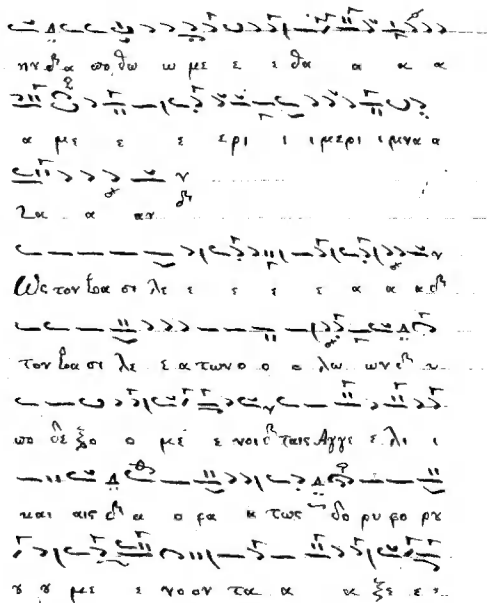 ην α πο θω ω με ε ε θα α α α
α με ε ε ε ρι ι ι μερι ι μνα α
α αν
Ως τον βα σι λε ε ε ε ε α α α
τον βα σι λε ε α των ο ο ο λω ων υ
πο δε ξο ο με ε νοι ταις Αγγε ε λι ι
και αις α ο ρα α τως δο ρυ φο ρυ
ȣ ȣ με ε νο ον τα α α ξε ε ε